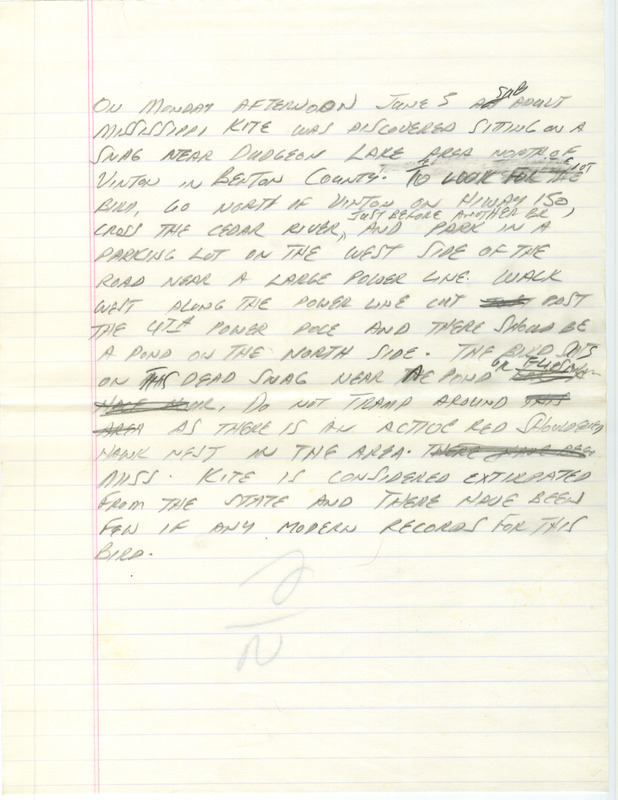 ON MONDAY AFTERNOON JUNE 5 A SUB ADULT
MISSISSIPPI KITE WAS DISCOVERED SITING ON A
SNAG NEAR DUDGEON LAKE AREA NORTH OF
VINTON IN BENTON COUNTY. TO LOOK FOR THE
BIRD, GO NORTH OF VINTON ON HIWAY 150,
JUST BEFORE ANOTHER BR
CROSS THE CEDAR RIVER, AND PARK IN A
PARKING LOT ON THE WEST SIDE OF THE
ROAD NEAR A LARGE POWER LINE. WALK
WEST ALONG THE POWER LINE CUT PAST
THE 4TH POWER POLE AND THERE SHOULD BE
A POND ON THE NORTH SIDE. THE BIRD SITS
ON THIS DEAD SNAG NEAR THE POND OR
DO NOT TRAMP AROUND THIS
AREA AS THERE IS AN ACTIVE RED SHOULDERED
HAWK NEST IN THE AREA. THERE HAVE BEEN
MISS. KITE IS CONSIDERED EXTIRPATED
FROM THE STATE AND THERE HAVE BEEN
FEW IF ANY MODERN RECORDS FOR THIS
BIRD.
2